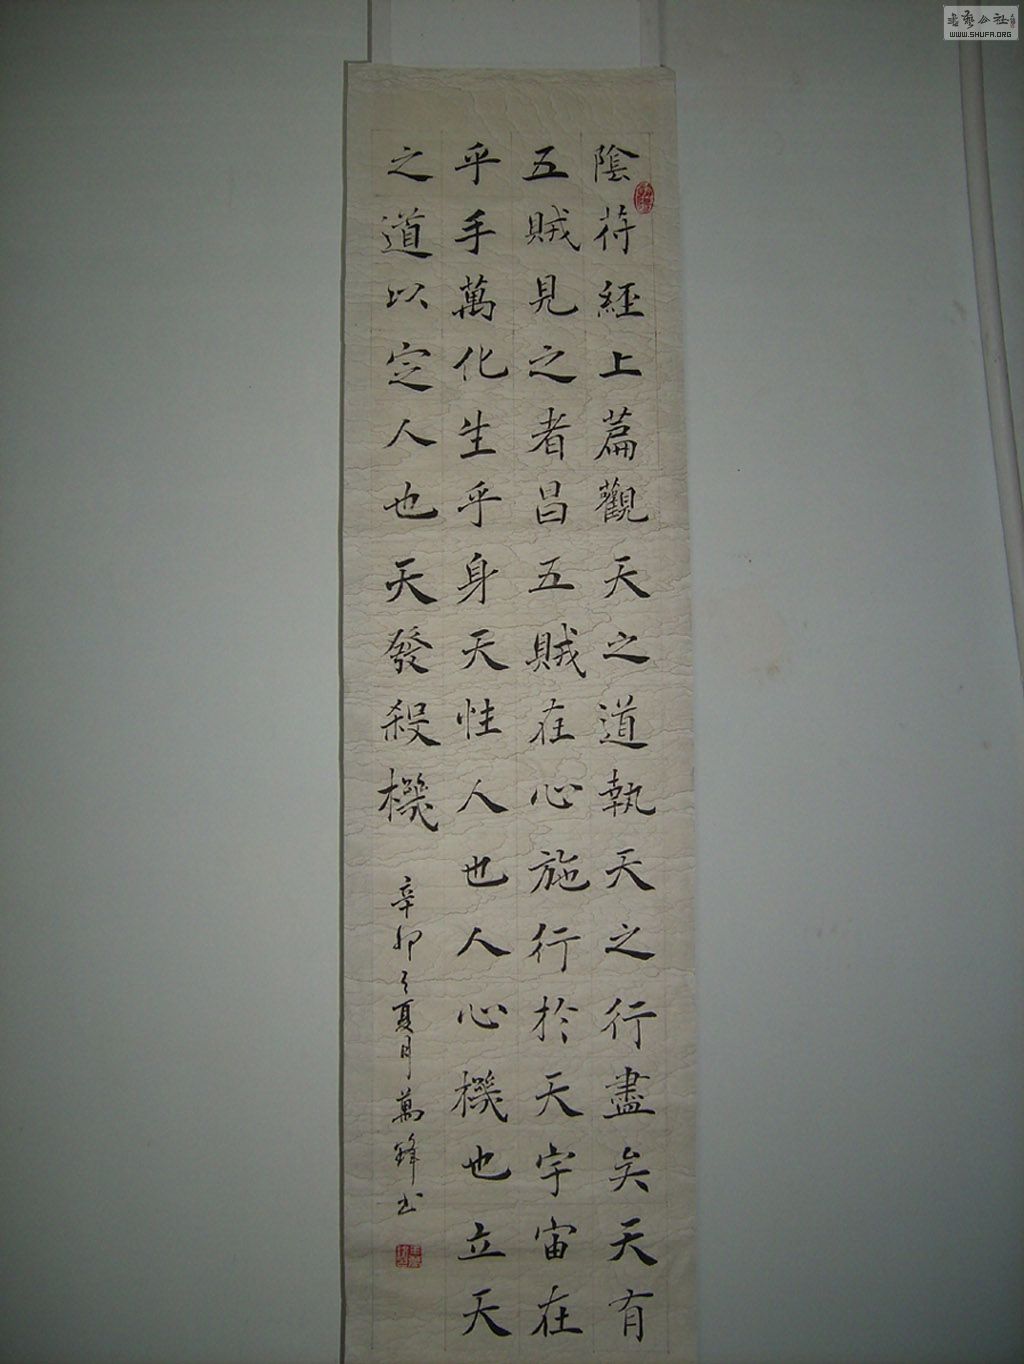 陰符經上篇觀天之道執天之行盡矣天有
五賊見之者昌五賊在心施行於天宇宙在
乎手萬化生乎身天性人也人心機也立天
之道以定人也天發殺機
辛卯之夏月萬鋒书
WWW.SHUFA.ORG